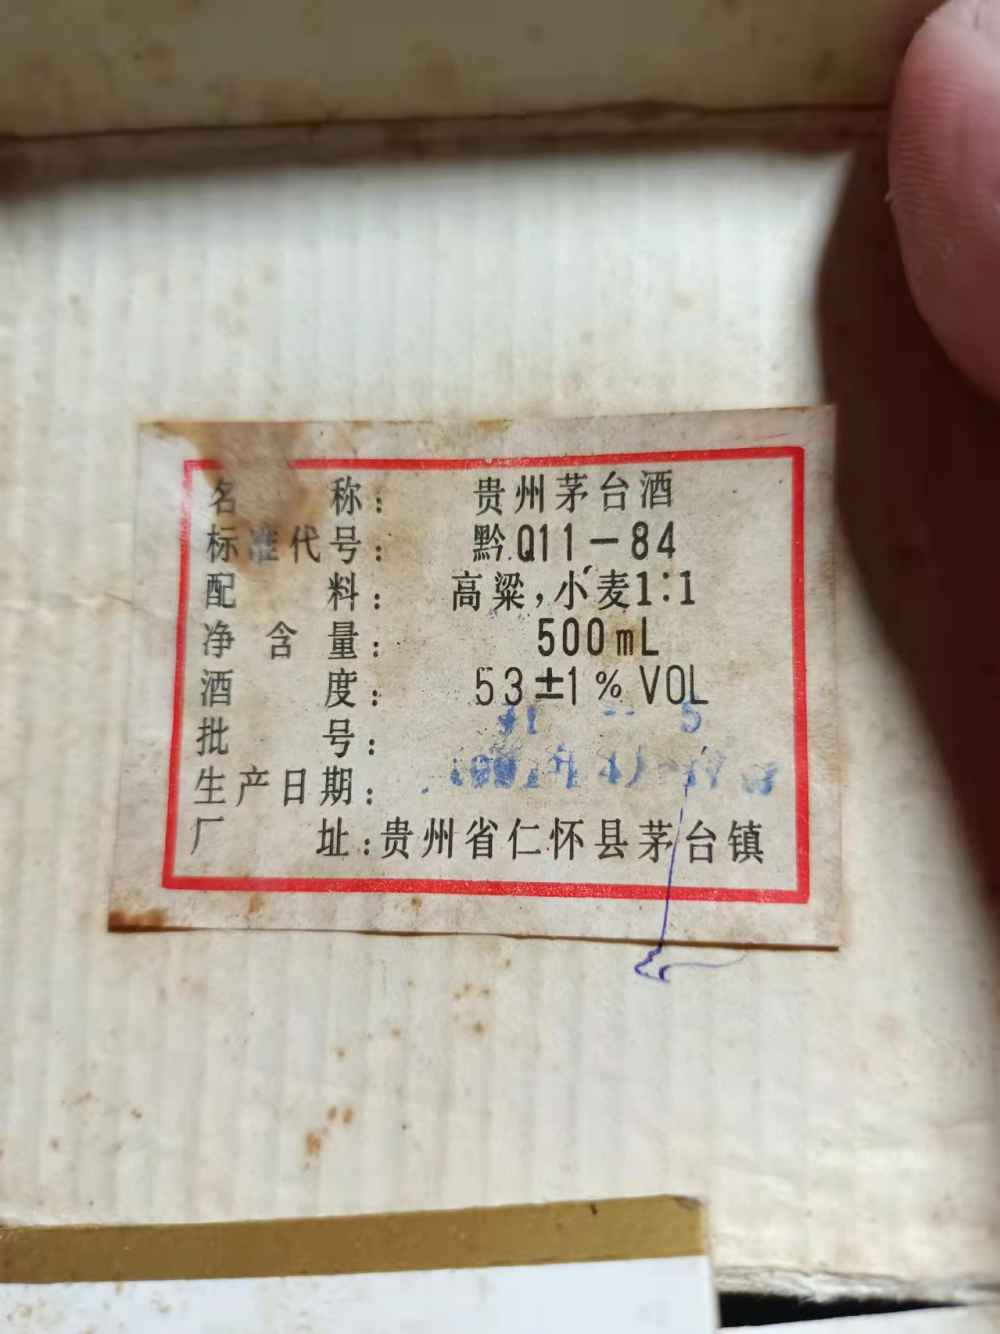 名称：贵州茅台酒
标准代号：黔Q11-84
配料：高粱，小麦1:1
净含量：500mL
酒度：53±1% VOL
批号：
生产日期：
厂址：贵州省仁怀县茅台镇